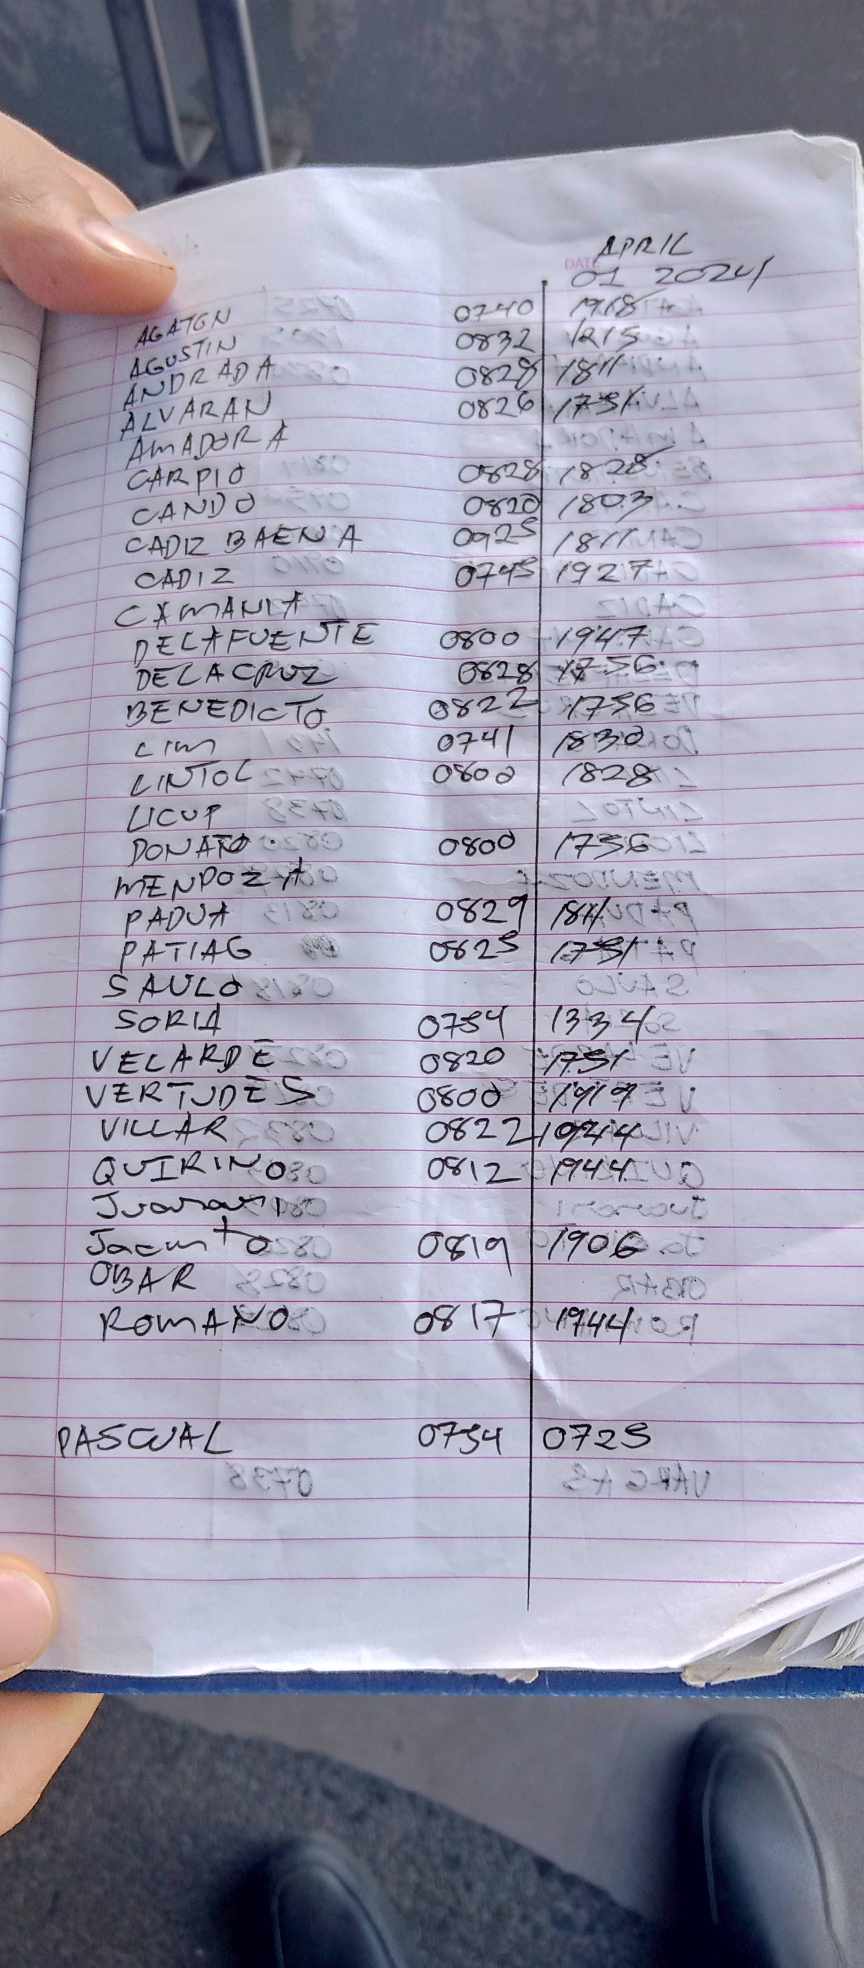 APRIL
DATE 01 2024
AGATON 0740 1918
AGUSTIN 0832 1215
ANDRADA 0828 1811
ALVARAN 0826 1751
AMADORA
CARPIO 0828 1828
CANDO 0820 1803
CADIZ BAENA 0925 1811
CADIZ 0745 1927
CAMANIA
DELAFUENTE 0800 1947
DELACRUZ 0828 1756
BENEDICTO 0822 1756
LIM 0741 1830
LINTOL 0800 1828
LICUP
DONATO 0800 1756
MENDOZA
PADUA 0829 1811
PATIAG 0825 1751
SAULO
SORIA 0754 1334
VELARDE 0820 1751
VERTUDES 0800 1919
VILLAR 0822 1944
QUIRINO 0812 1944
Jacinto 0819 1906
OBAR
ROMANO 0817 1944
PASCUAL 0754 0725